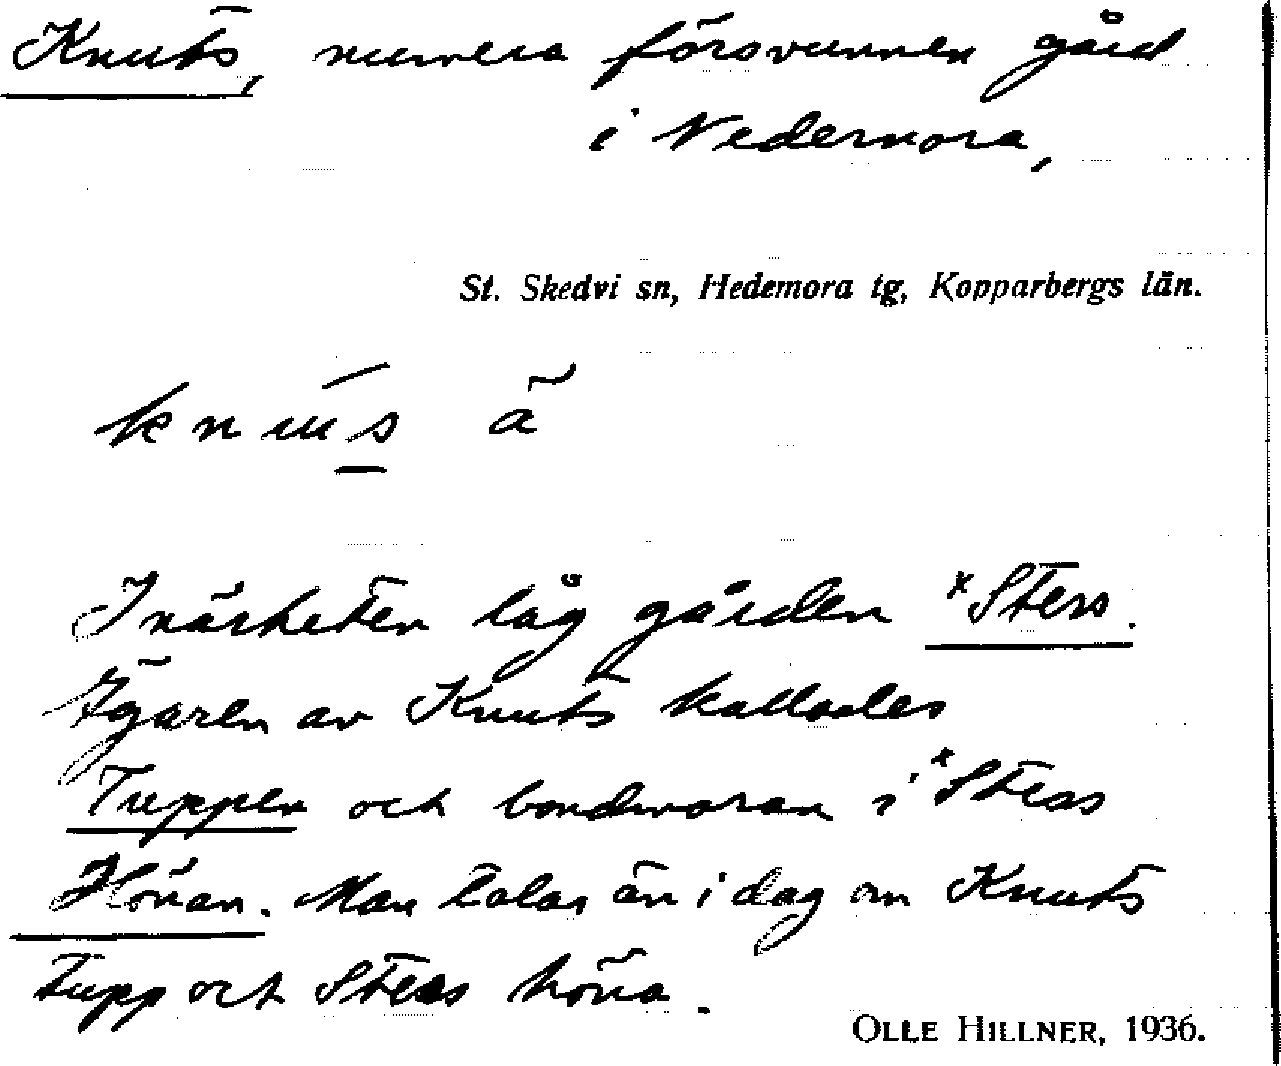 Knuts, numera försvunnen gård
i Nedernora,
St. Skedvi sn, Hedemora tg, Kopparbergs län.
I närheten låg gården
Ägaren av Knuts kallades
Tuppen och bondmoran i
Hönan. Man talar än i dag om Knuts
tupp och höna.
OLLE HILLNER, 1936.